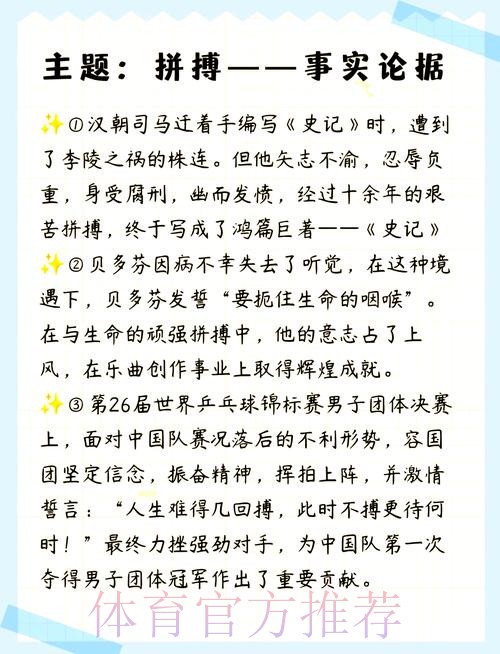 主题：拼搏——事实论据
✨①汉朝司马迁着手编写《史记》时，遭到
了李陵之祸的株连。但他矢志不渝，忍辱负
重，身受腐刑，幽而发愤，经过十余年的艰
苦拼搏，终于写成了鸿篇巨著——《史记》
✨②贝多芬因病不幸失去了听觉，在这种境
遇下，贝多芬发誓“要扼住生命的咽喉”。
在与生命的顽强拼搏中，他的意志占了上
风，在乐曲创作事业上取得辉煌成就。
✨③第26届世界乒乓球锦标赛男子团体决赛
上，面对中国队赛况落后的不利形势，容国
团坚定信念，振奋精神，挥拍上阵，并激情
誓言：“人生难得几回搏，此时不搏更待何
时！”最终力挫强劲对手，为中国队第一次
夺得男子团体冠军作出了重要贡献。
体育官方推荐